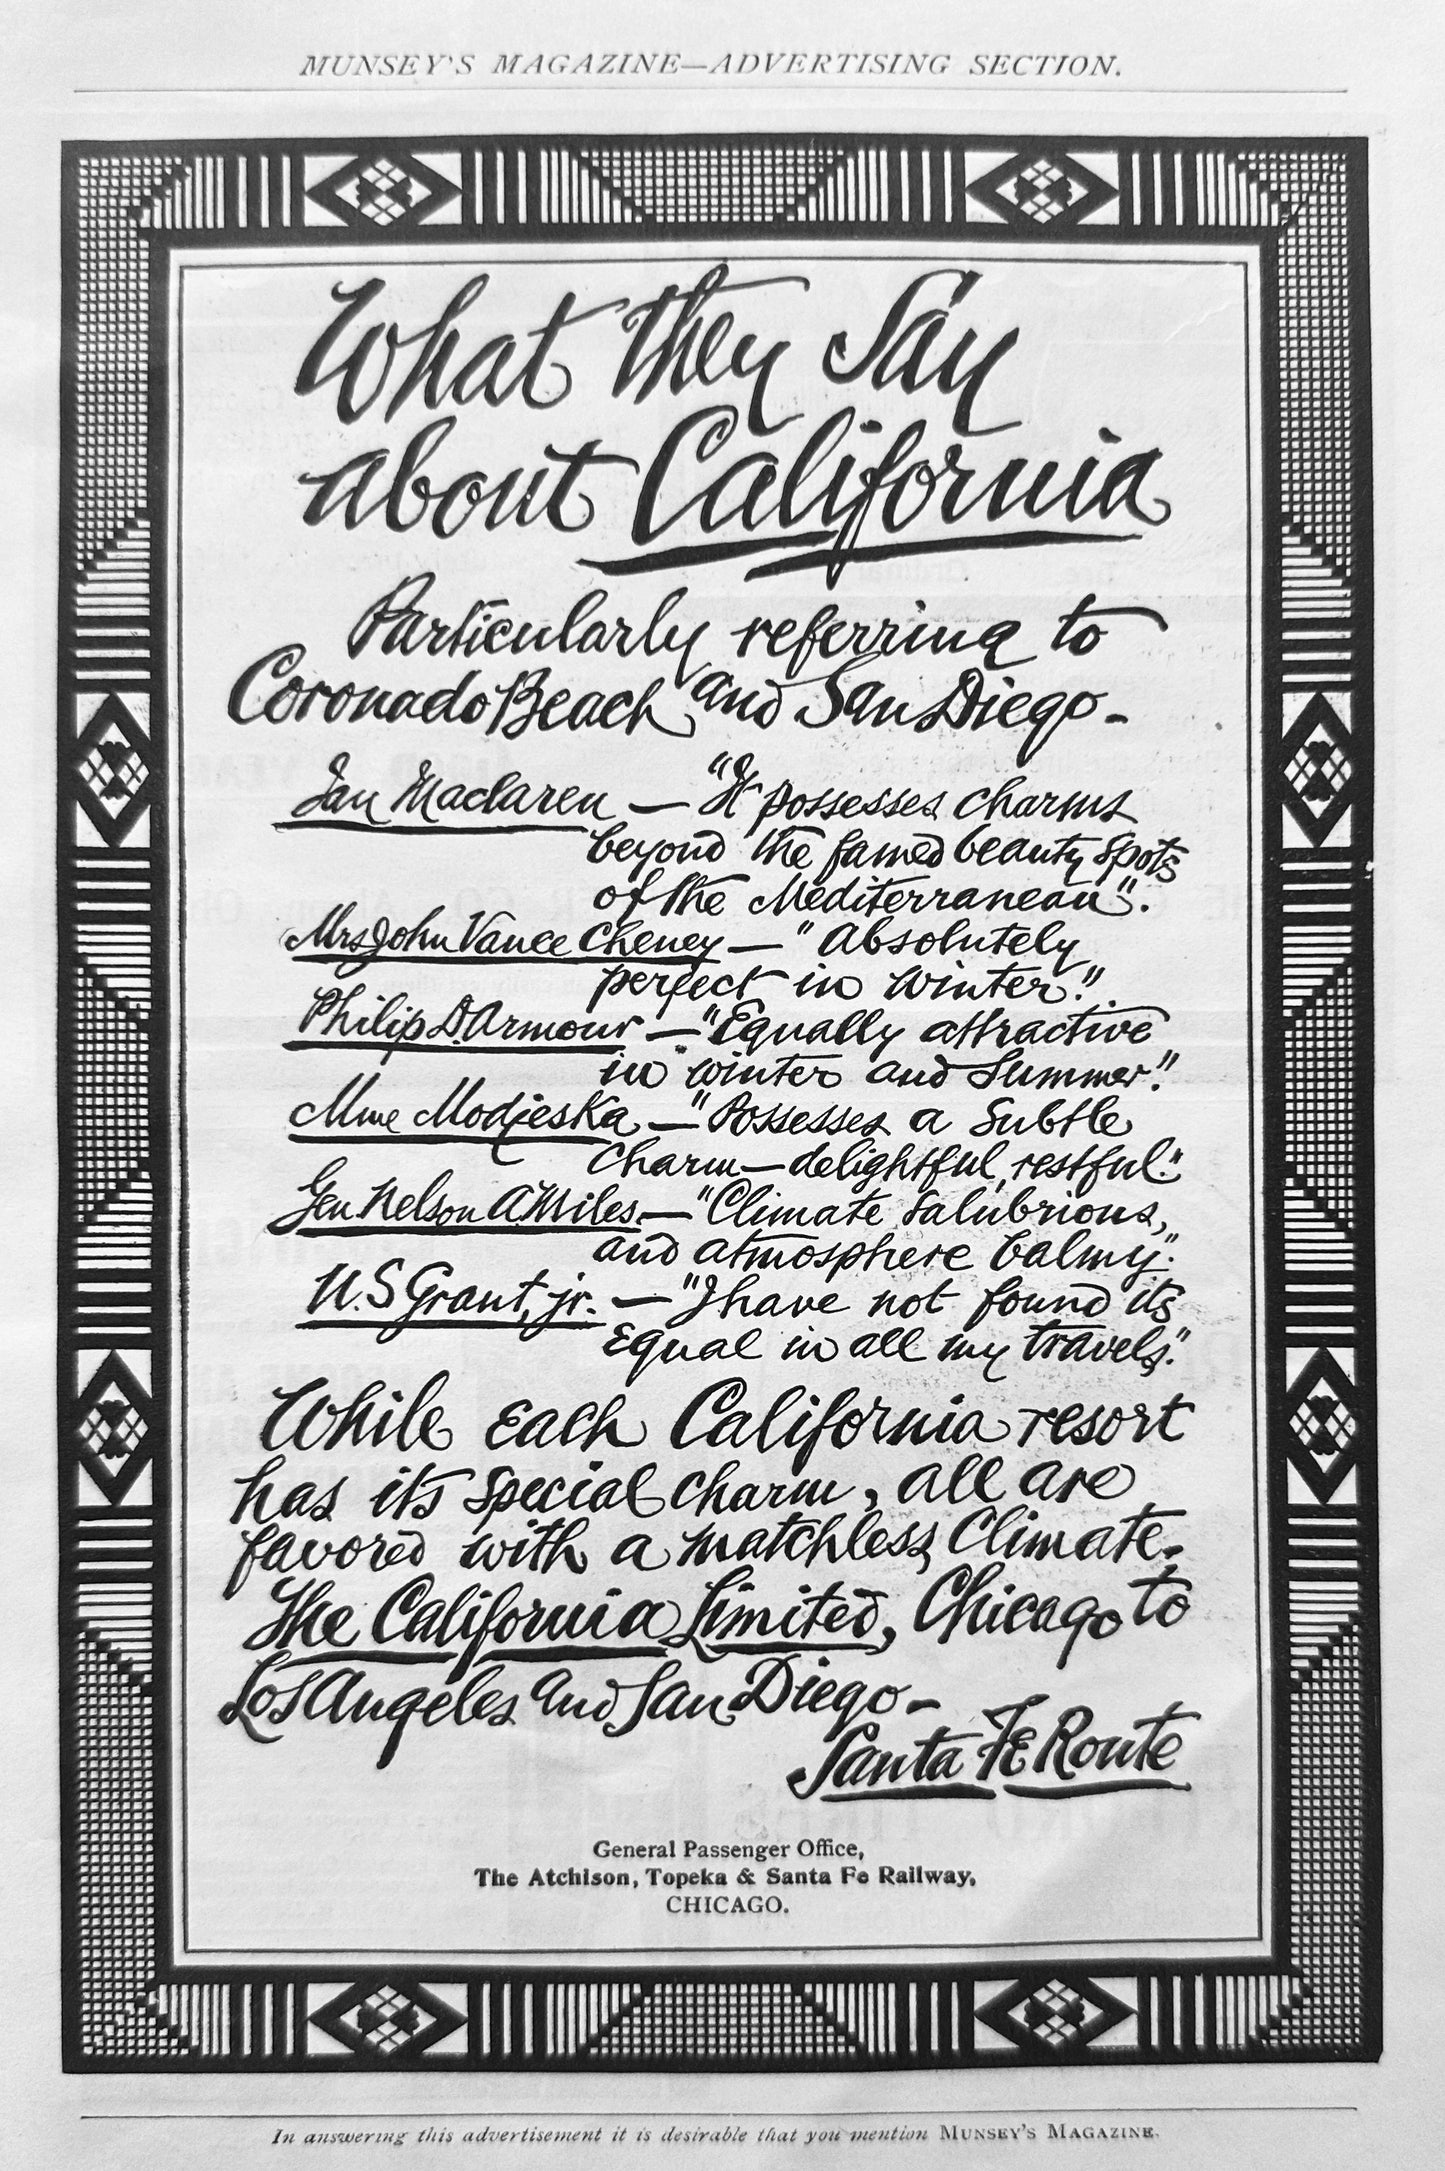 MUNSEY'S MAGAZINE—ADVERTISING SECTION.
What they Say
about California
Particularly referring to
Coronado Beach and San Diego-
Ian Maclaren — "It possesses charms
beyond the famed beauty spots
of the Mediterranean".
Mrs John Vance Cheney — "Absolutely
perfect in winter."
Philip D. Armour — "Equally attractive
in winter and summer."
Mme Modjeska — "Possesses a subtle
charm—delightful, restful."
Gen Nelson A. Miles — "Climate salubrious,
and atmosphere balmy."
U.S Grant, jr. — "I have not found its
equal in all my travels."
While each California resort
has its special charm, all are
favored with a matchless climate.
The California Limited, Chicago to
Los Angeles and San Diego-
Santa Fe Route
General Passenger Office,
The Atchison, Topeka & Santa Fe Railway,
CHICAGO.
In answering this advertisement it is desirable that you mention MUNSEY'S MAGAZINE.